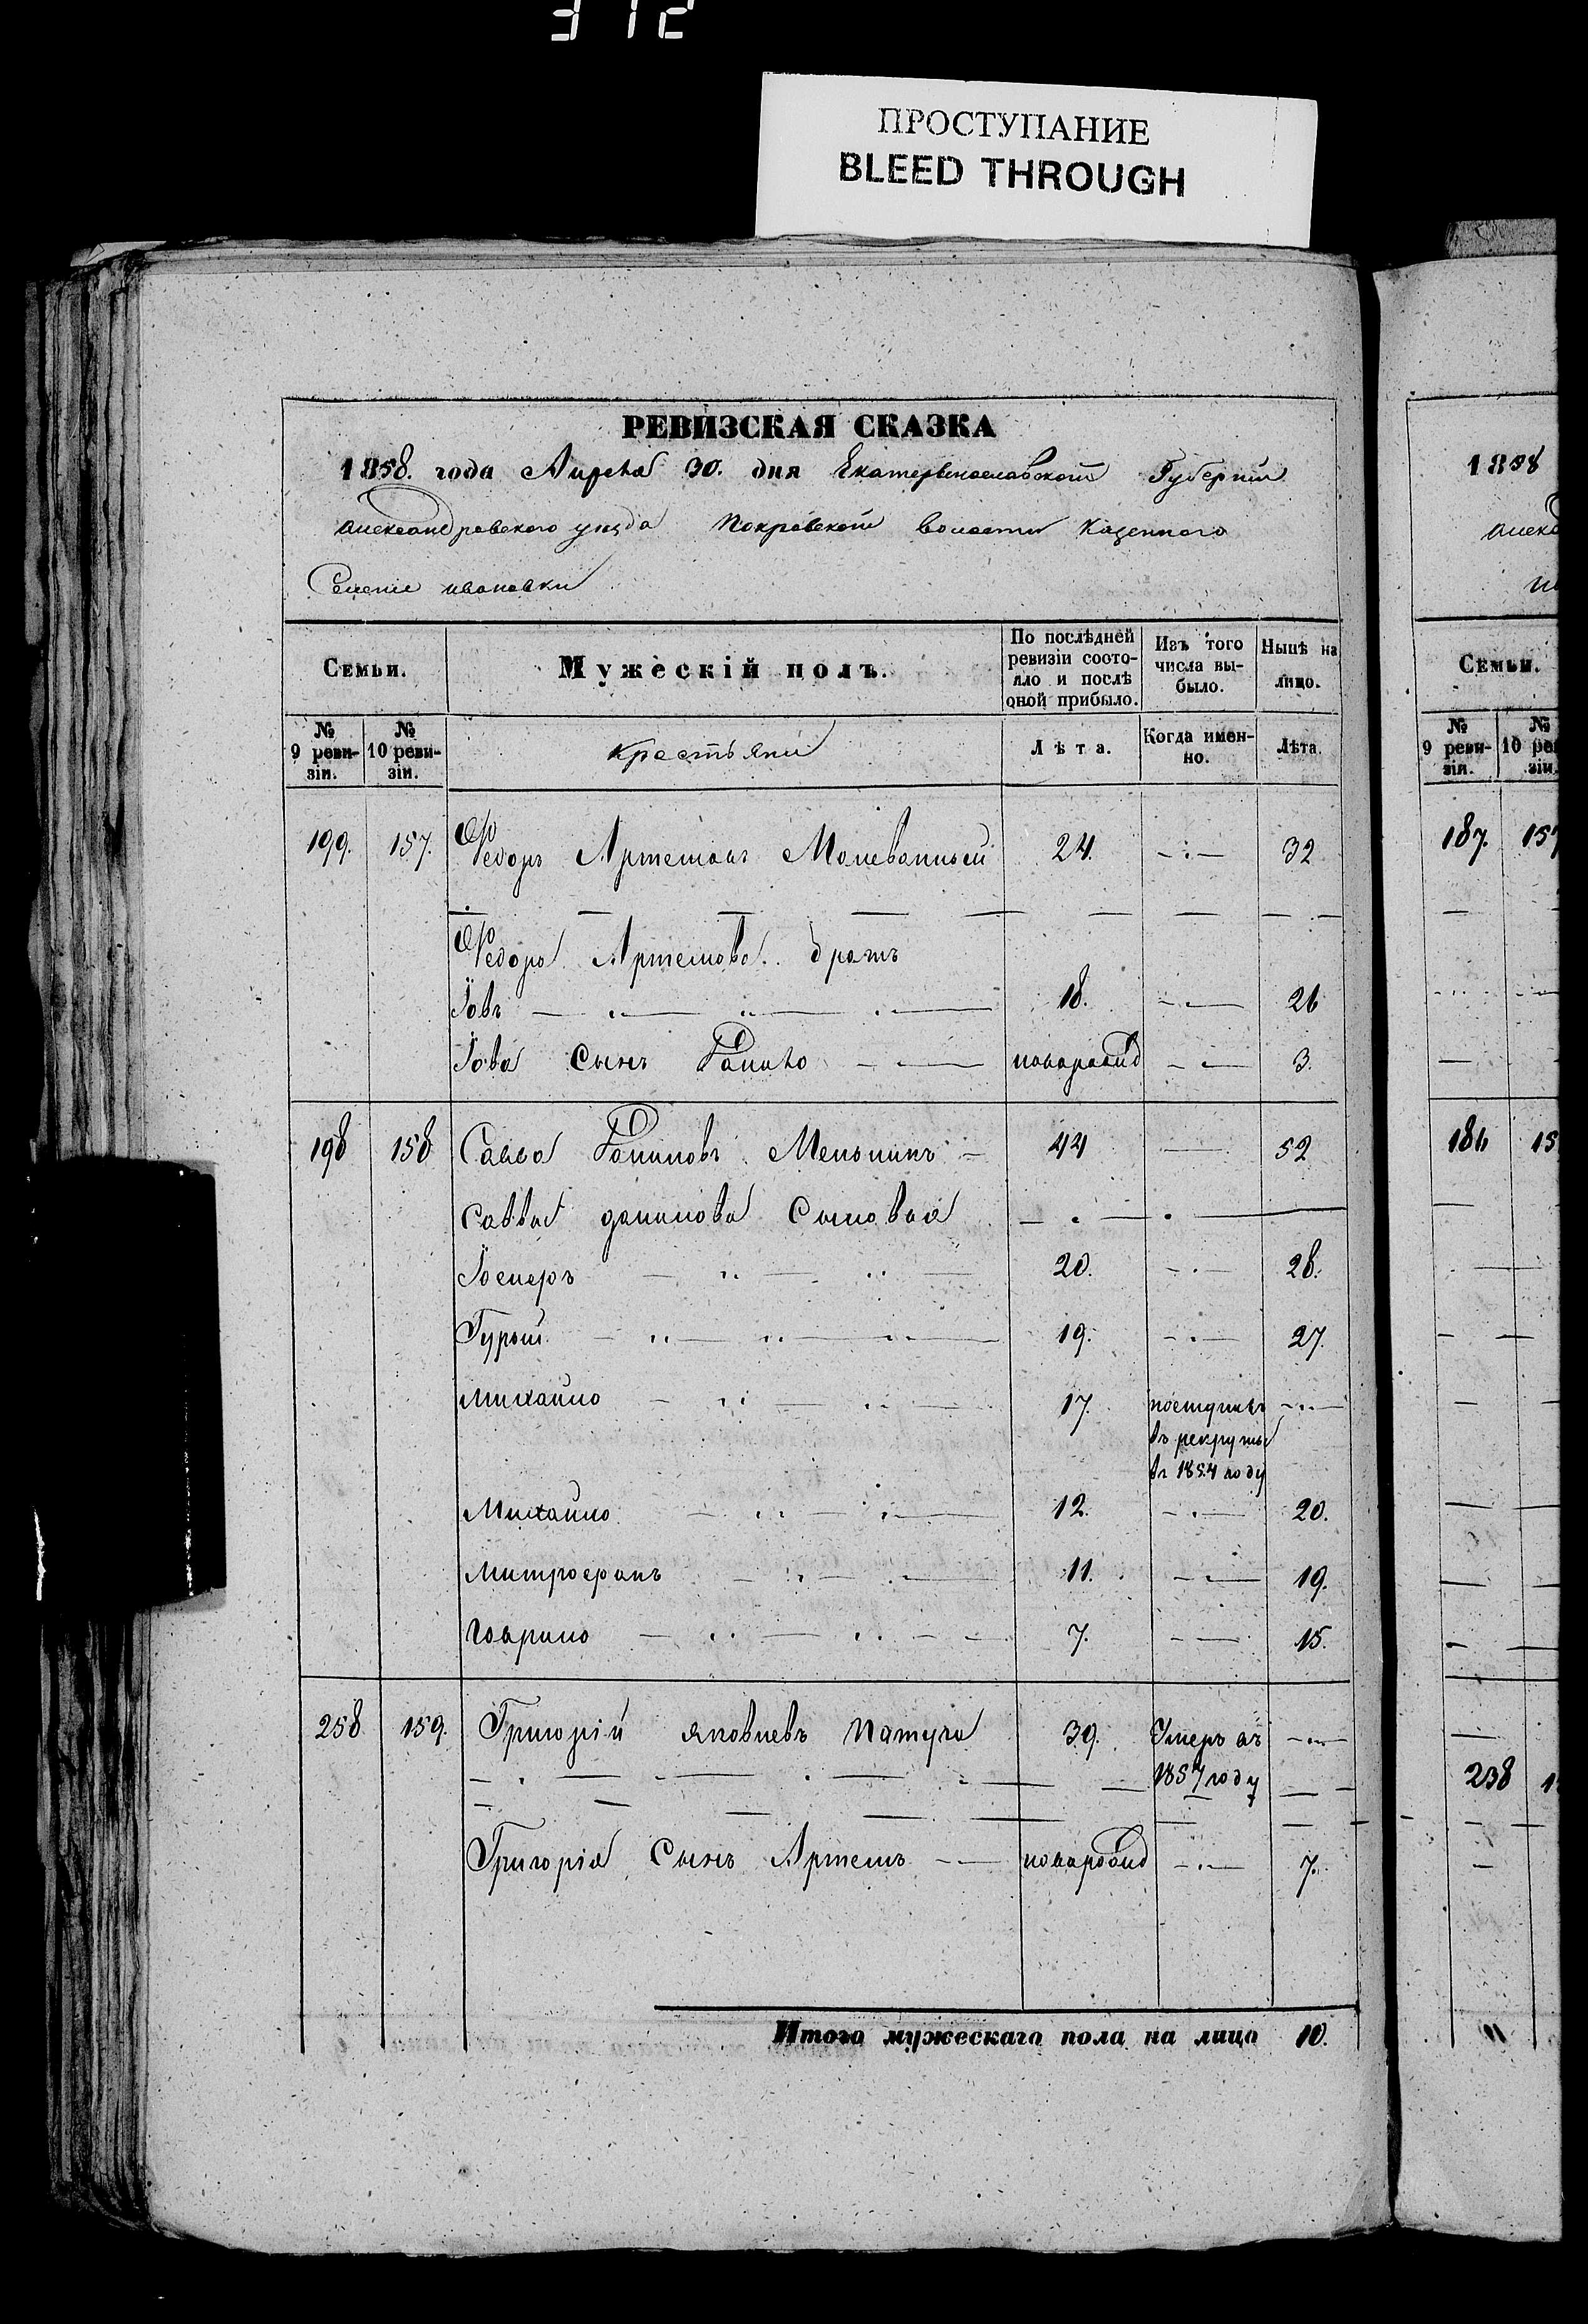 312
ПРОСТУПАНИЕ
BLEED THROUGH
РЕВИЗСКАЯ СКАЗКА
1858. года Апреля 30. дня Екатеринославской Губернии
Александровского уезда Покровской волости Казенного
Селения ивановки
Семьи.
Мужескій полъ.
По послѣдней ревизіи состояло и послѣ оной прибыло.
Изъ того числа выбыло.
Нынѣ на лицо.
№ 9 ревизіи.
№ 10 ревизіи.
крестьяни
Лѣта.
Когда именно.
Лѣта.
199. 157. Федоръ Артемовъ Молеванный 24. 32
Федора Артемова братъ
Іовъ 18. 26
Іова Сынъ Данило новорожд 3.
198 158 Савва Даниловъ Мельникъ 44 52
Саввы данилова Сыновья
Іосипъ 20. 28.
Гурый 19. 27.
Михайло 17. поступилъ
въ рекруты
въ 1854 году
Михайло 12. 20.
Митрофанъ 11. 19.
Гаврило 7. 15.
258 159. Григорій яковлевъ 39. Умеръ въ
1857 году
Григорія Сынъ Артемъ новорожд 7.
Итого мужескаго пола на лицо 10.
1858
Семьи.
№ 9 ревизіи.
№
187. 157
186 15
238
11